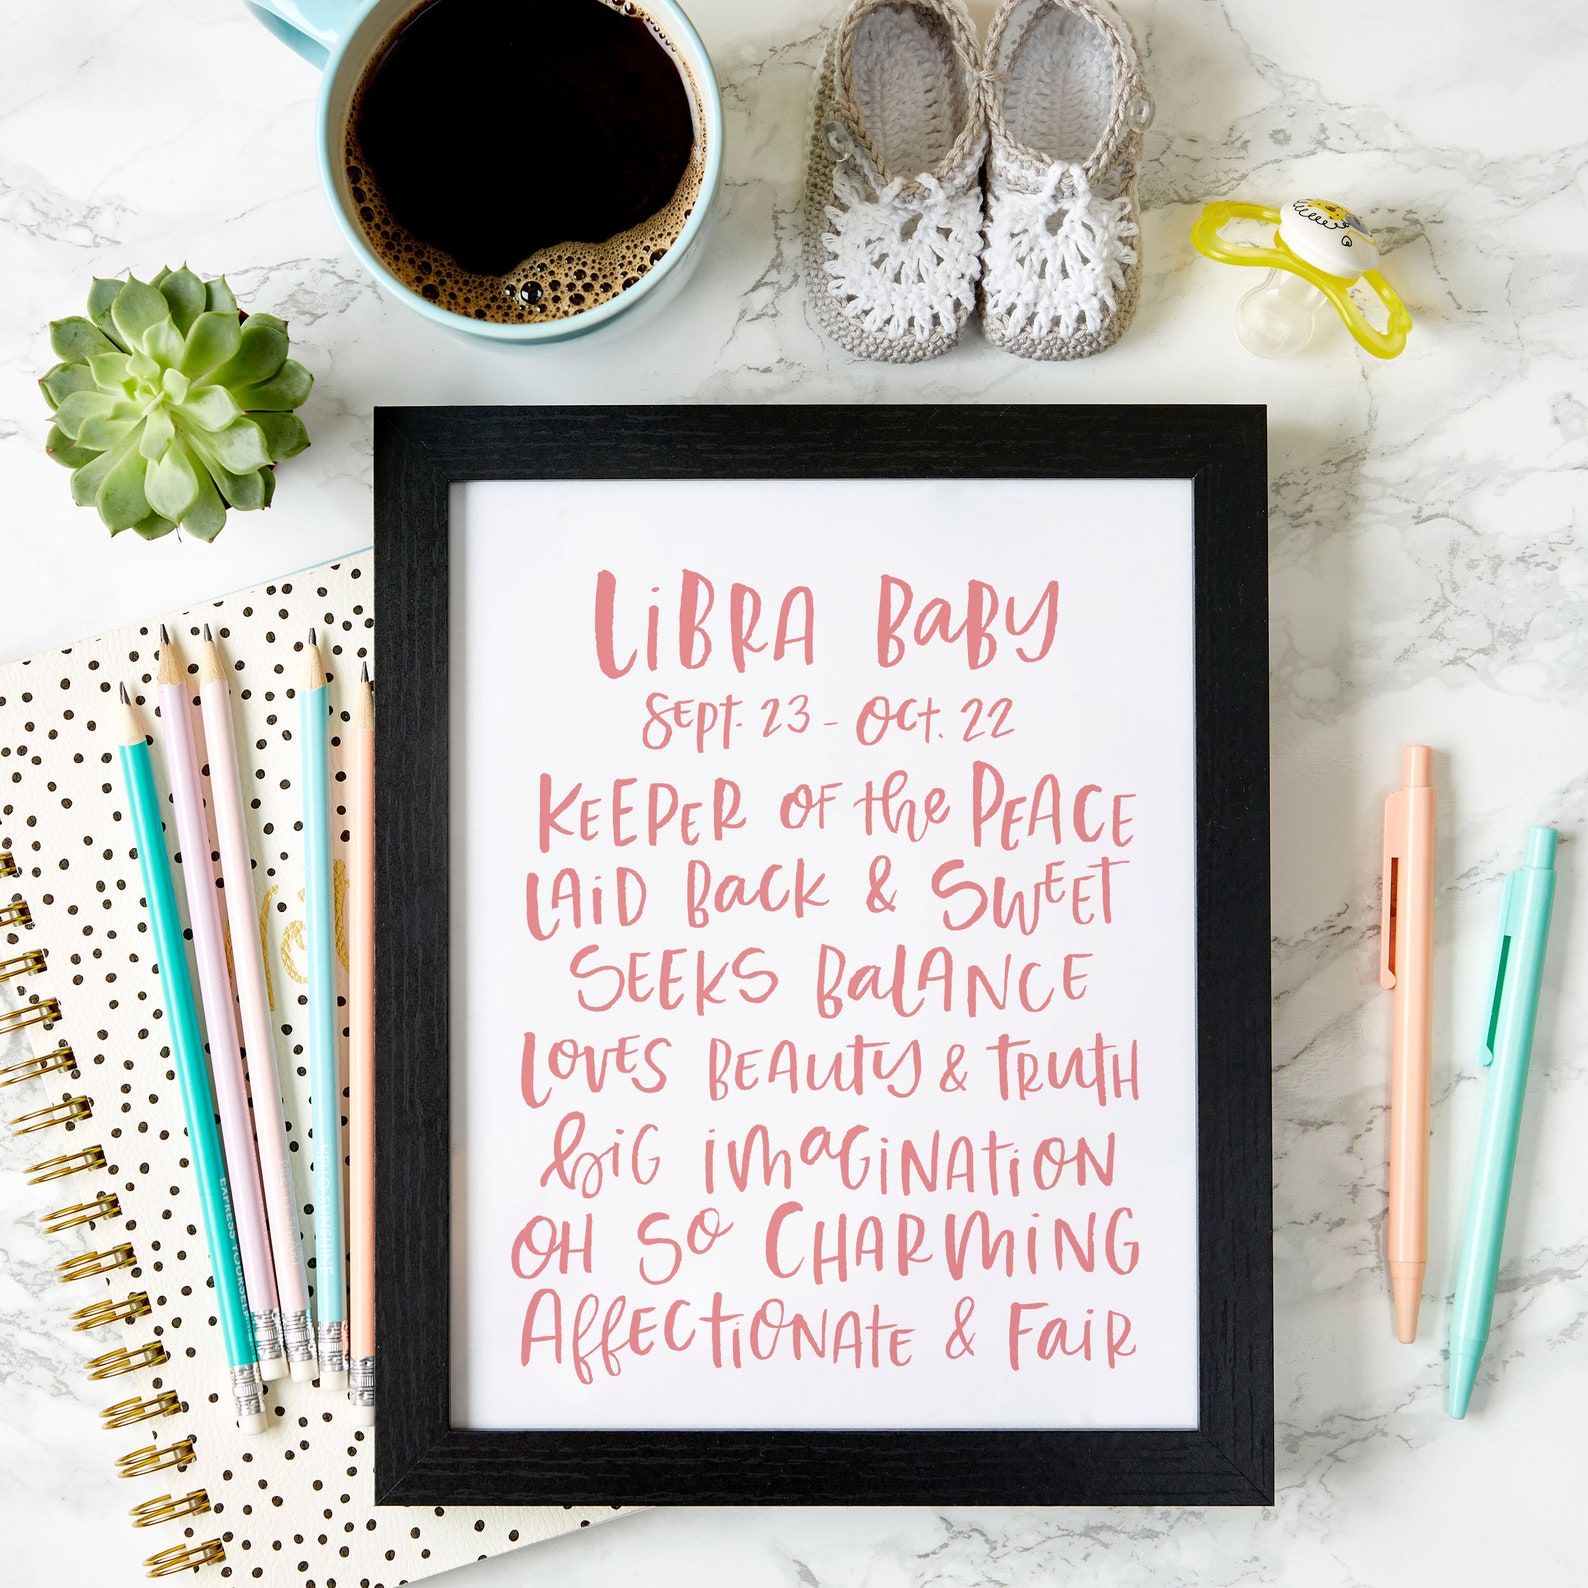 LiBRA BaBY
Sept. 23 - Oct. 22
KeePER OF the PEACE
LAiD Back & SWEET
SEEKS BaLANCE
LoveS BEAUTY & TRUTH
big iMaGiNATiON
OH So CHARMING
AffectiONATE & FaiR
EXPRESS YOURSELF
HELLO SUNSHINE